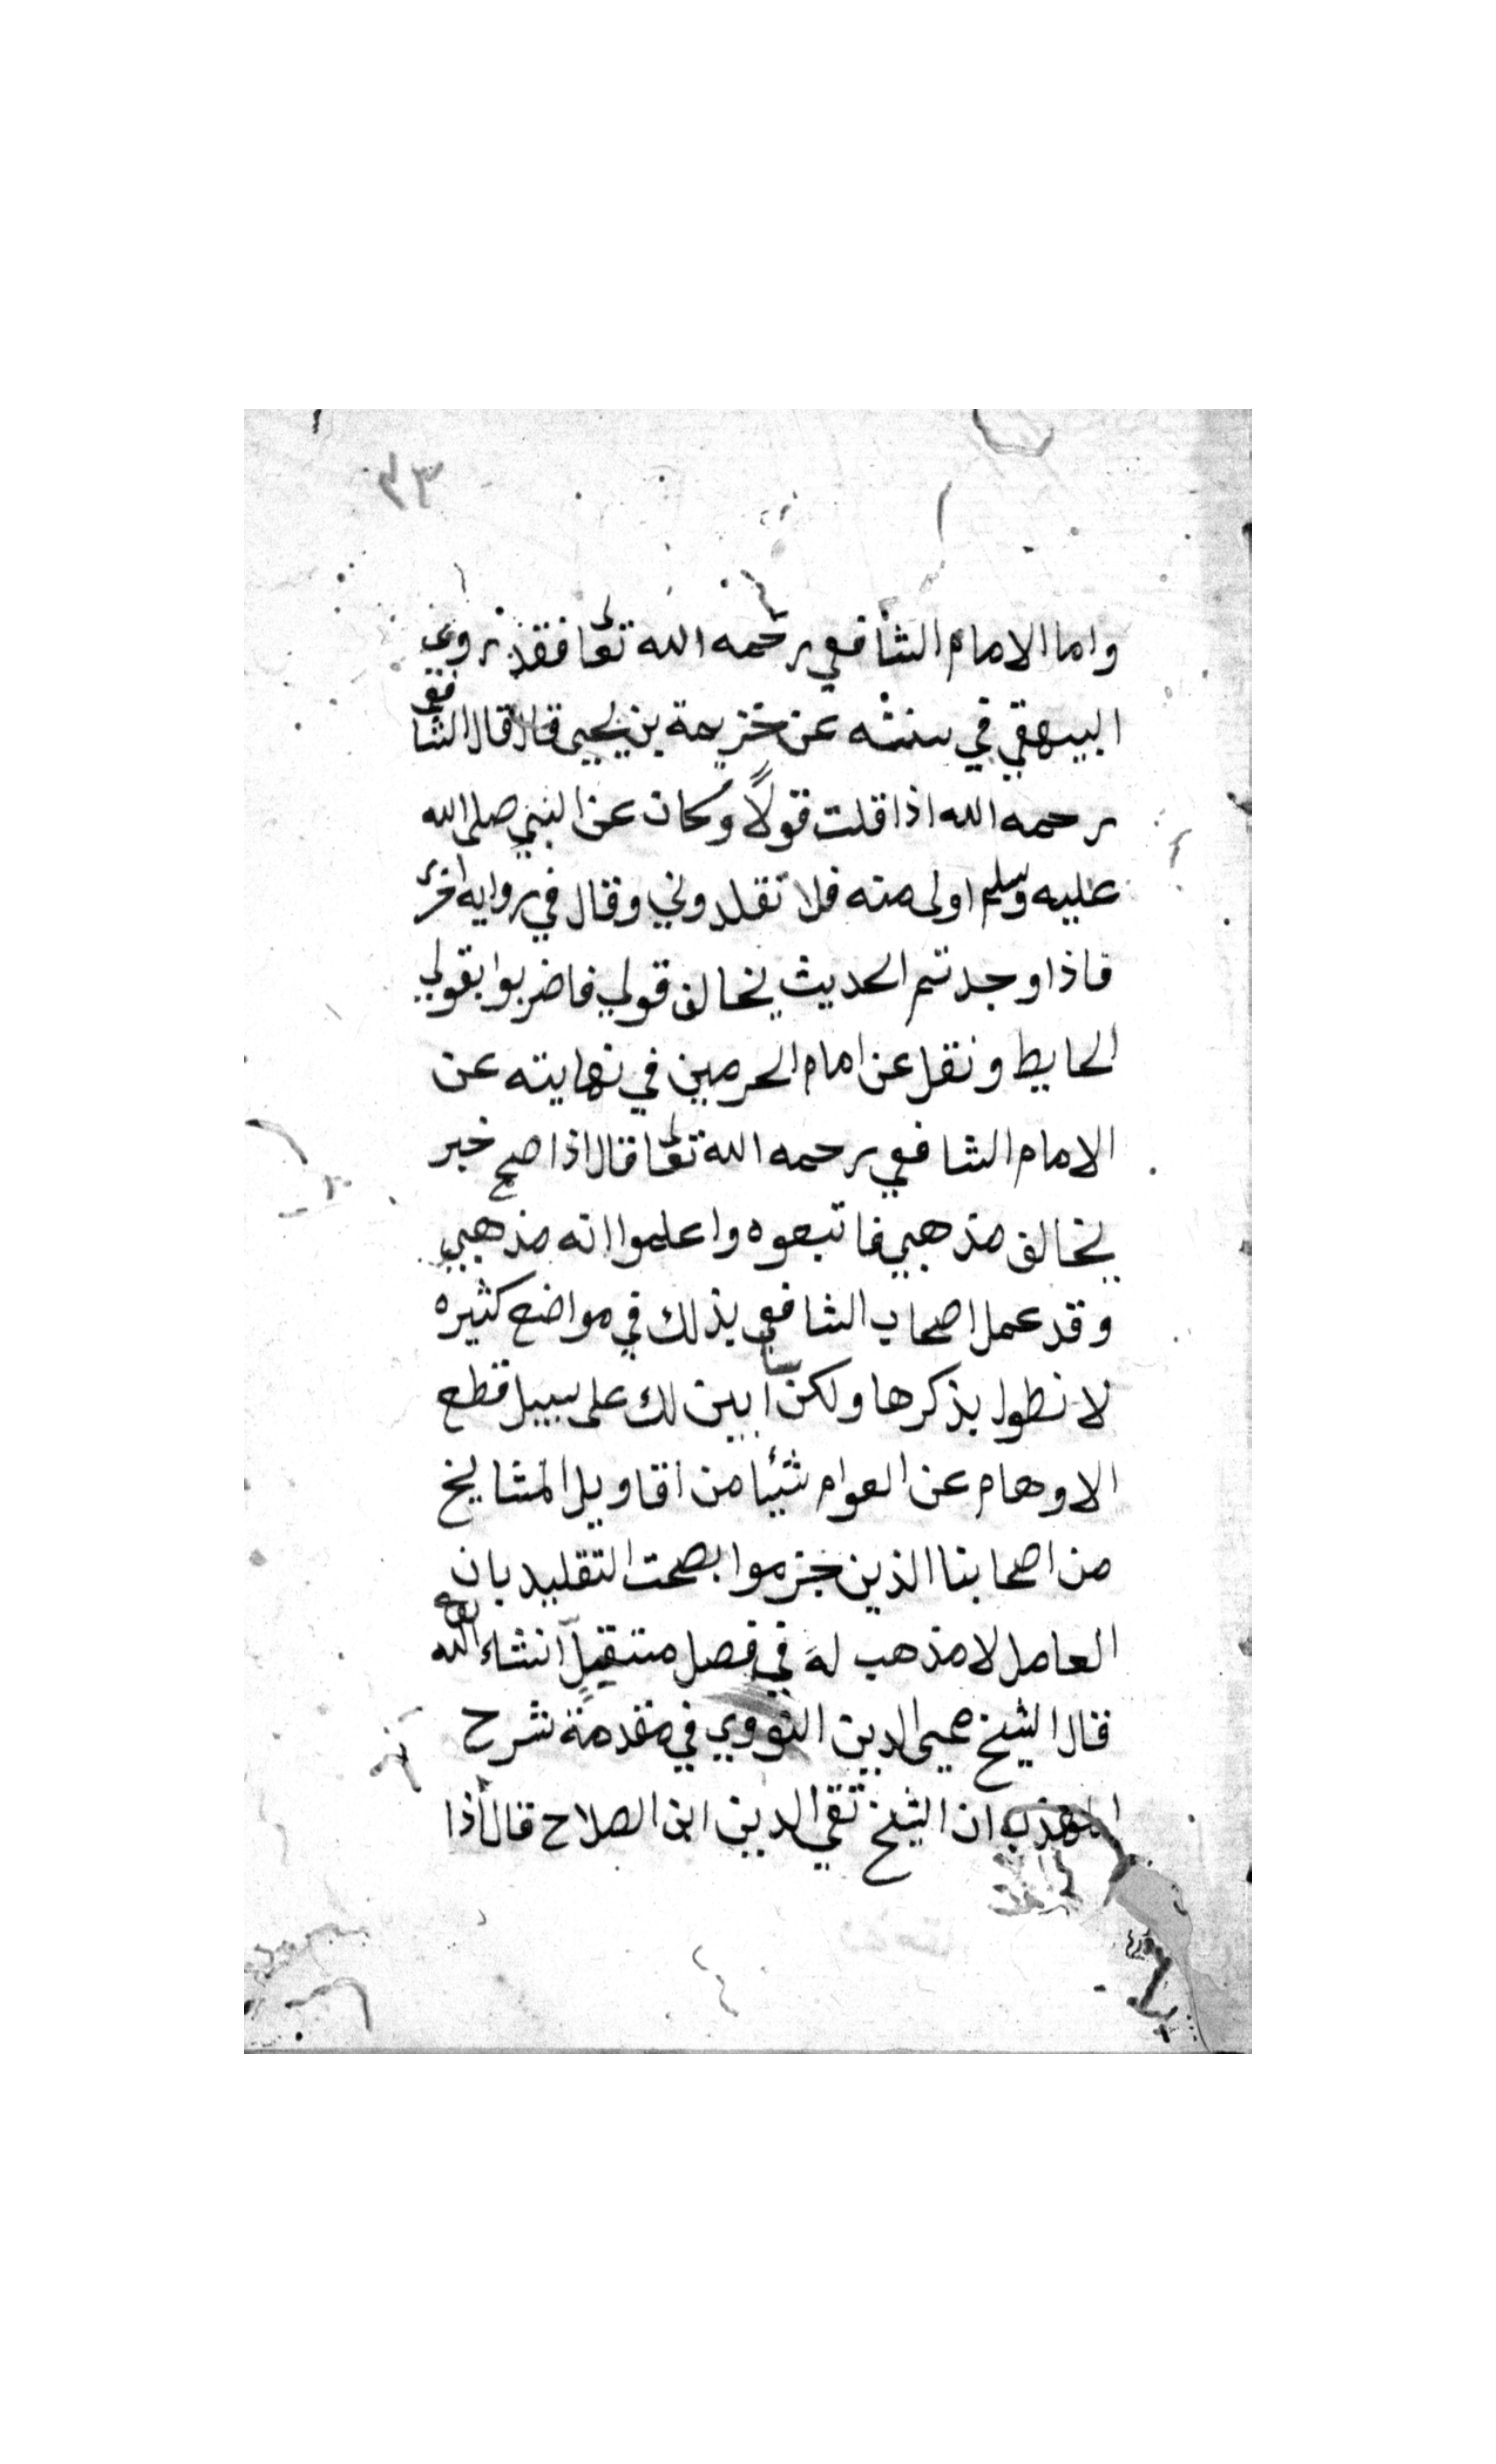 ٣٣
واما الامام الشافعي رحمه الله تعا فقد روى
البيهقي في سننه عن خزيمة بن يحيى قال قال الشافعي
رحمه الله اذا قلت قولاً وكان عن النبي صلى الله
عليه وسلم اولى منه فلا تقلدوني وقال في روايه اخرى
فاذا وجدتم الحديث يخالف قولي فاضربوا بقولي
الحايط ونقل عن امام الحرمين في نهايته عن
الامام الشافعي رحمه الله تعا قال اذا صح خبر
يخالف مذهبي فاتبعوه واعلموا انه مذهبي
وقد عمل اصحاب الشافعي بذلك في مواضع كثيره
لا نطول بذكرها ولكن ابين لك على سبيل قطع
الاوهام عن العوام شيئا من اقاويل المشايخ
من اصحابنا الذين جزموا بصحت التقليد بان
العامل لا مذهب له في فصل مستقل انشاء الله
قال الشيخ محيى الدين النووي في مقدمة شرح
المهذب ان الشيخ تقي الدين ابن الصلاح قال اذا